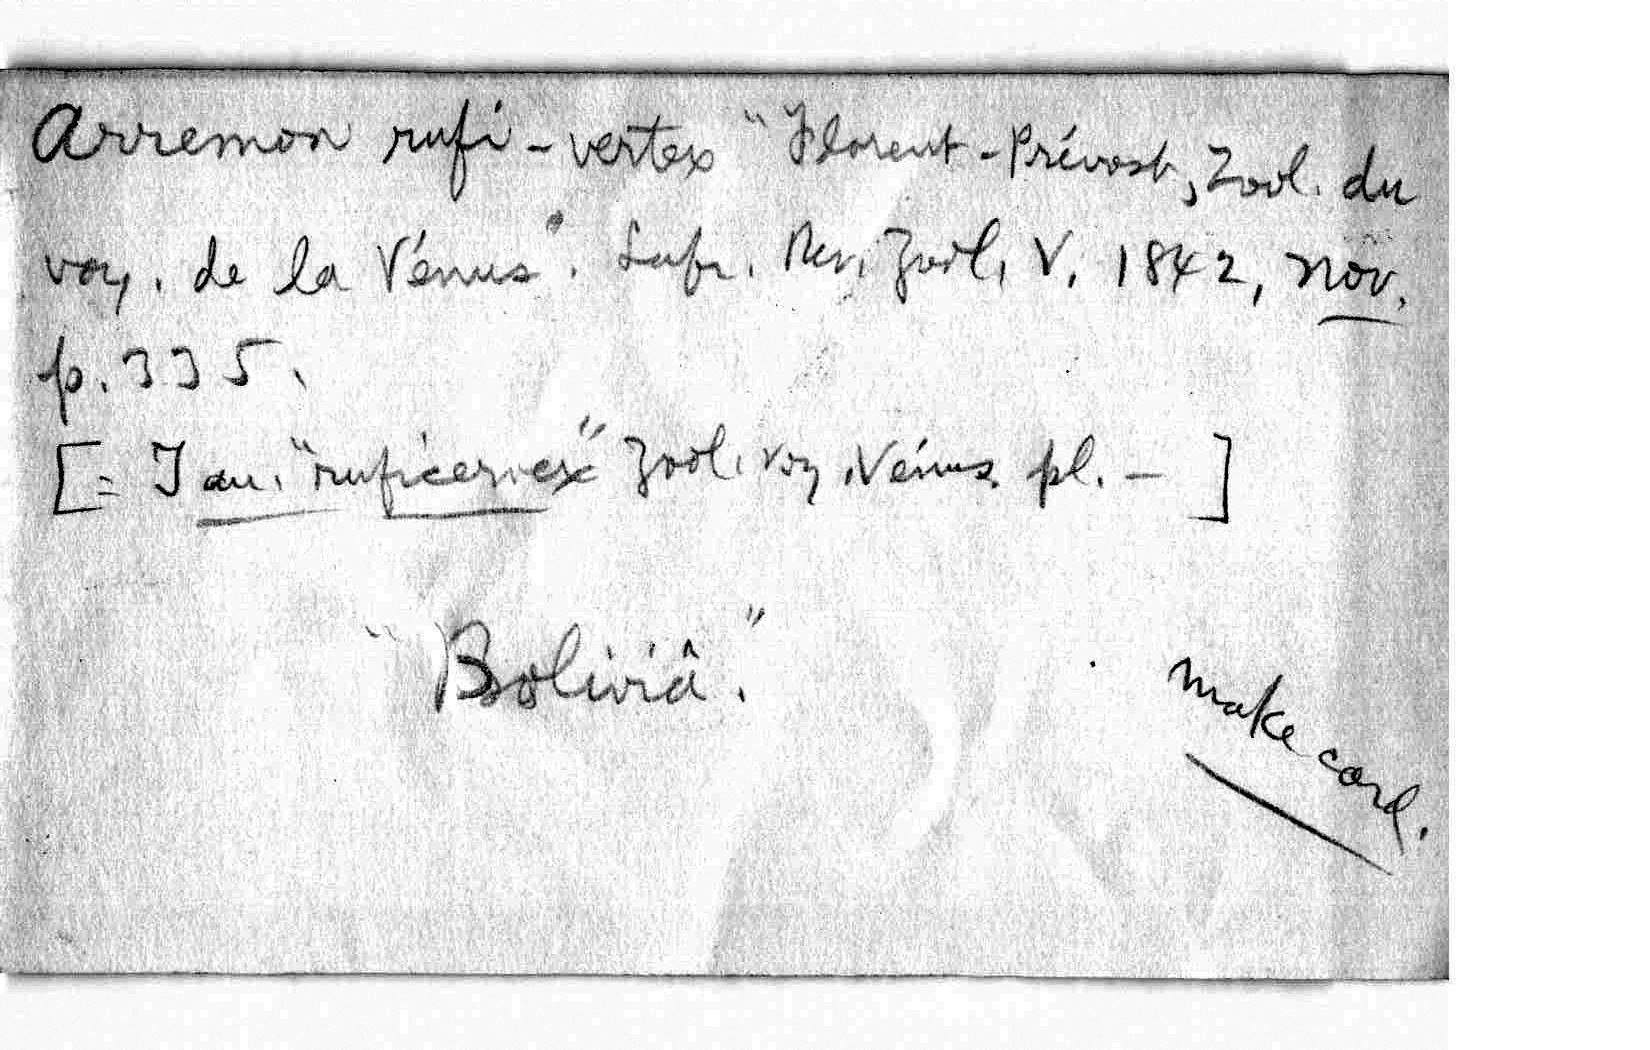 Arremon rufi-vertex "Florent-Prévost, Zool. du
voy. de la Vénus". Lafr. Rev. Zool. V. 1842, Nov.
p. 335.
[= Tan. "ruficervex" Zool. voy. Vénus pl. - ]
"Boliviâ."
make card.